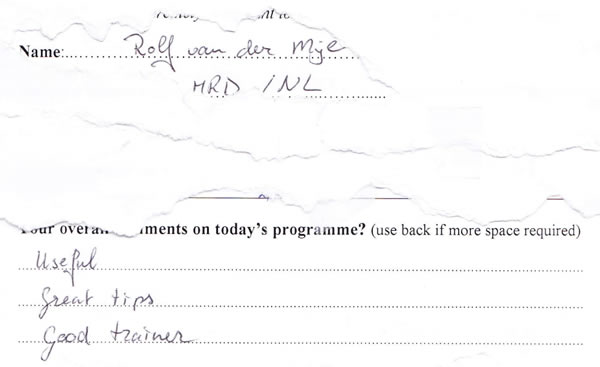 Name: Rolf van der Mije
HRD INL
Your overall comments on today's programme? (use back if more space required)
Useful
Great tips
Good trainer